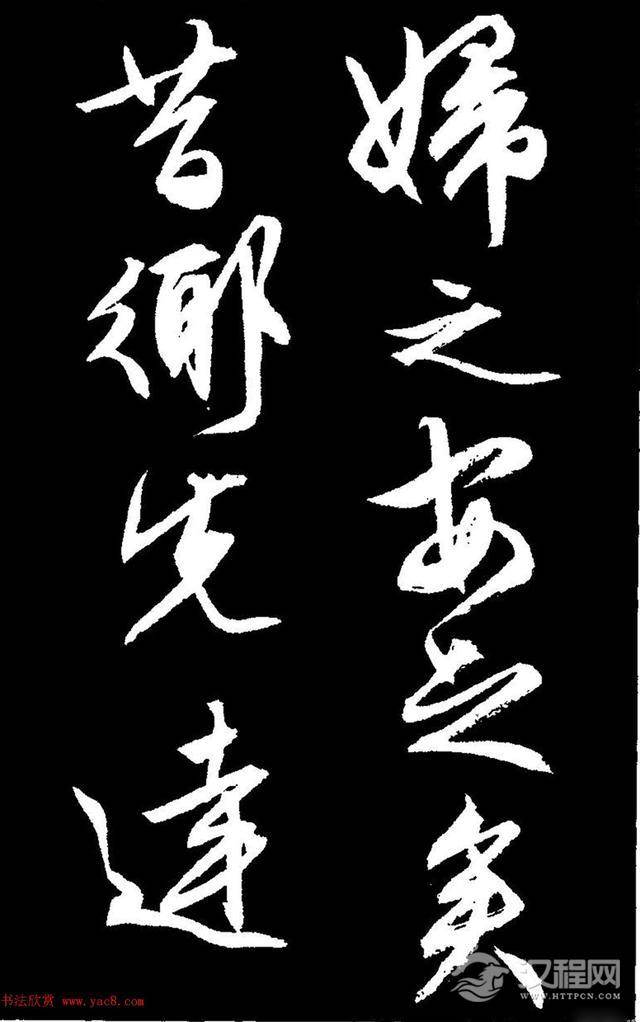 婦之安之矣
昔鄉先達
书法欣赏 www.yac8.com
汉程网
HTTPCN.COM